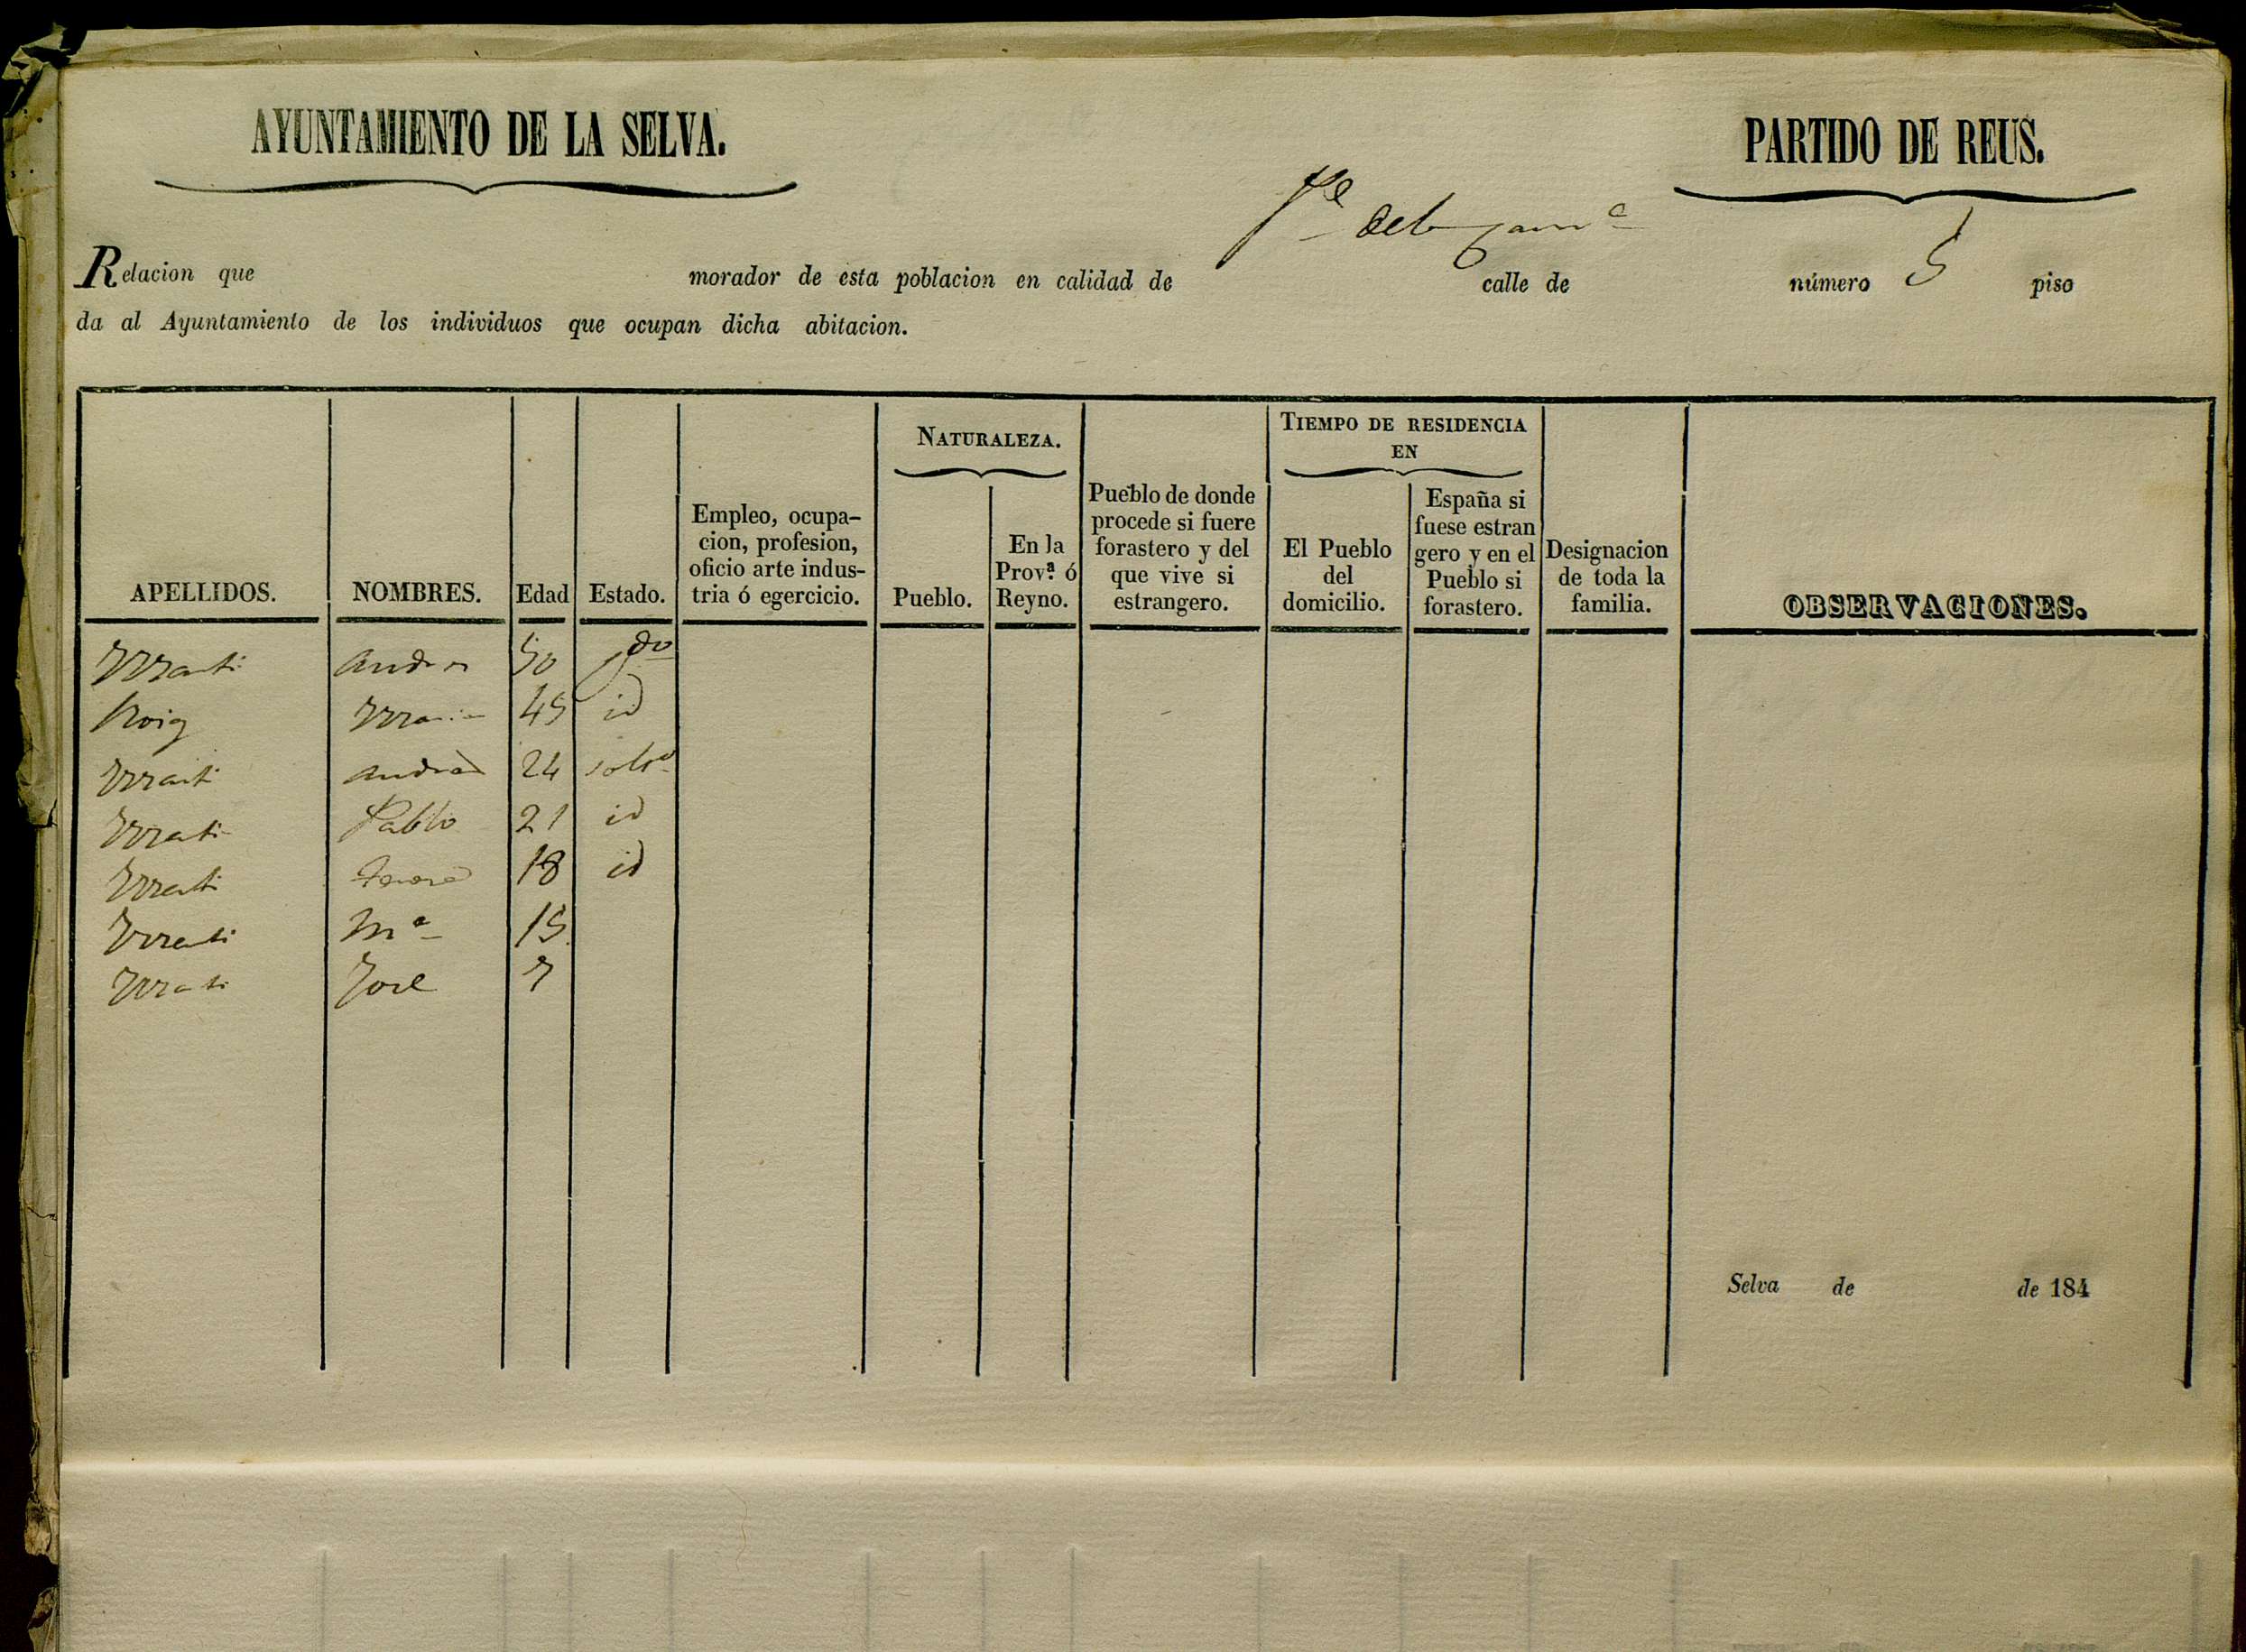 AYUNTAMIENTO DE LA SELVA.
PARTIDO DE REUS.
Relacion que morador de esta poblacion en calidad de calle de número 5 piso
da al Ayuntamiento de los individuos que ocupan dicha abitacion.
APELLIDOS.
NOMBRES.
Edad
Estado.
Empleo, ocupa-
cion, profesion,
oficio arte indus-
tria ó egercicio.
NATURALEZA.
Pueblo.
En la
Prov.ª ó
Reyno.
Pueblo de donde
procede si fuere
forastero y del
que vive si
estrangero.
TIEMPO DE RESIDENCIA
EN
El Pueblo
del
domicilio.
España si
fuese estran
gero y en el
Pueblo si
forastero.
Designacion
de toda la
familia.
OBSERVACIONES.
Marti Andres 50
Roig Maria 45 id
Marti Andres 24 solt.º
Marti Pablo 21 id
Marti 18 id
Marti Mª 15
Marti Jose 7
Selva de de 184